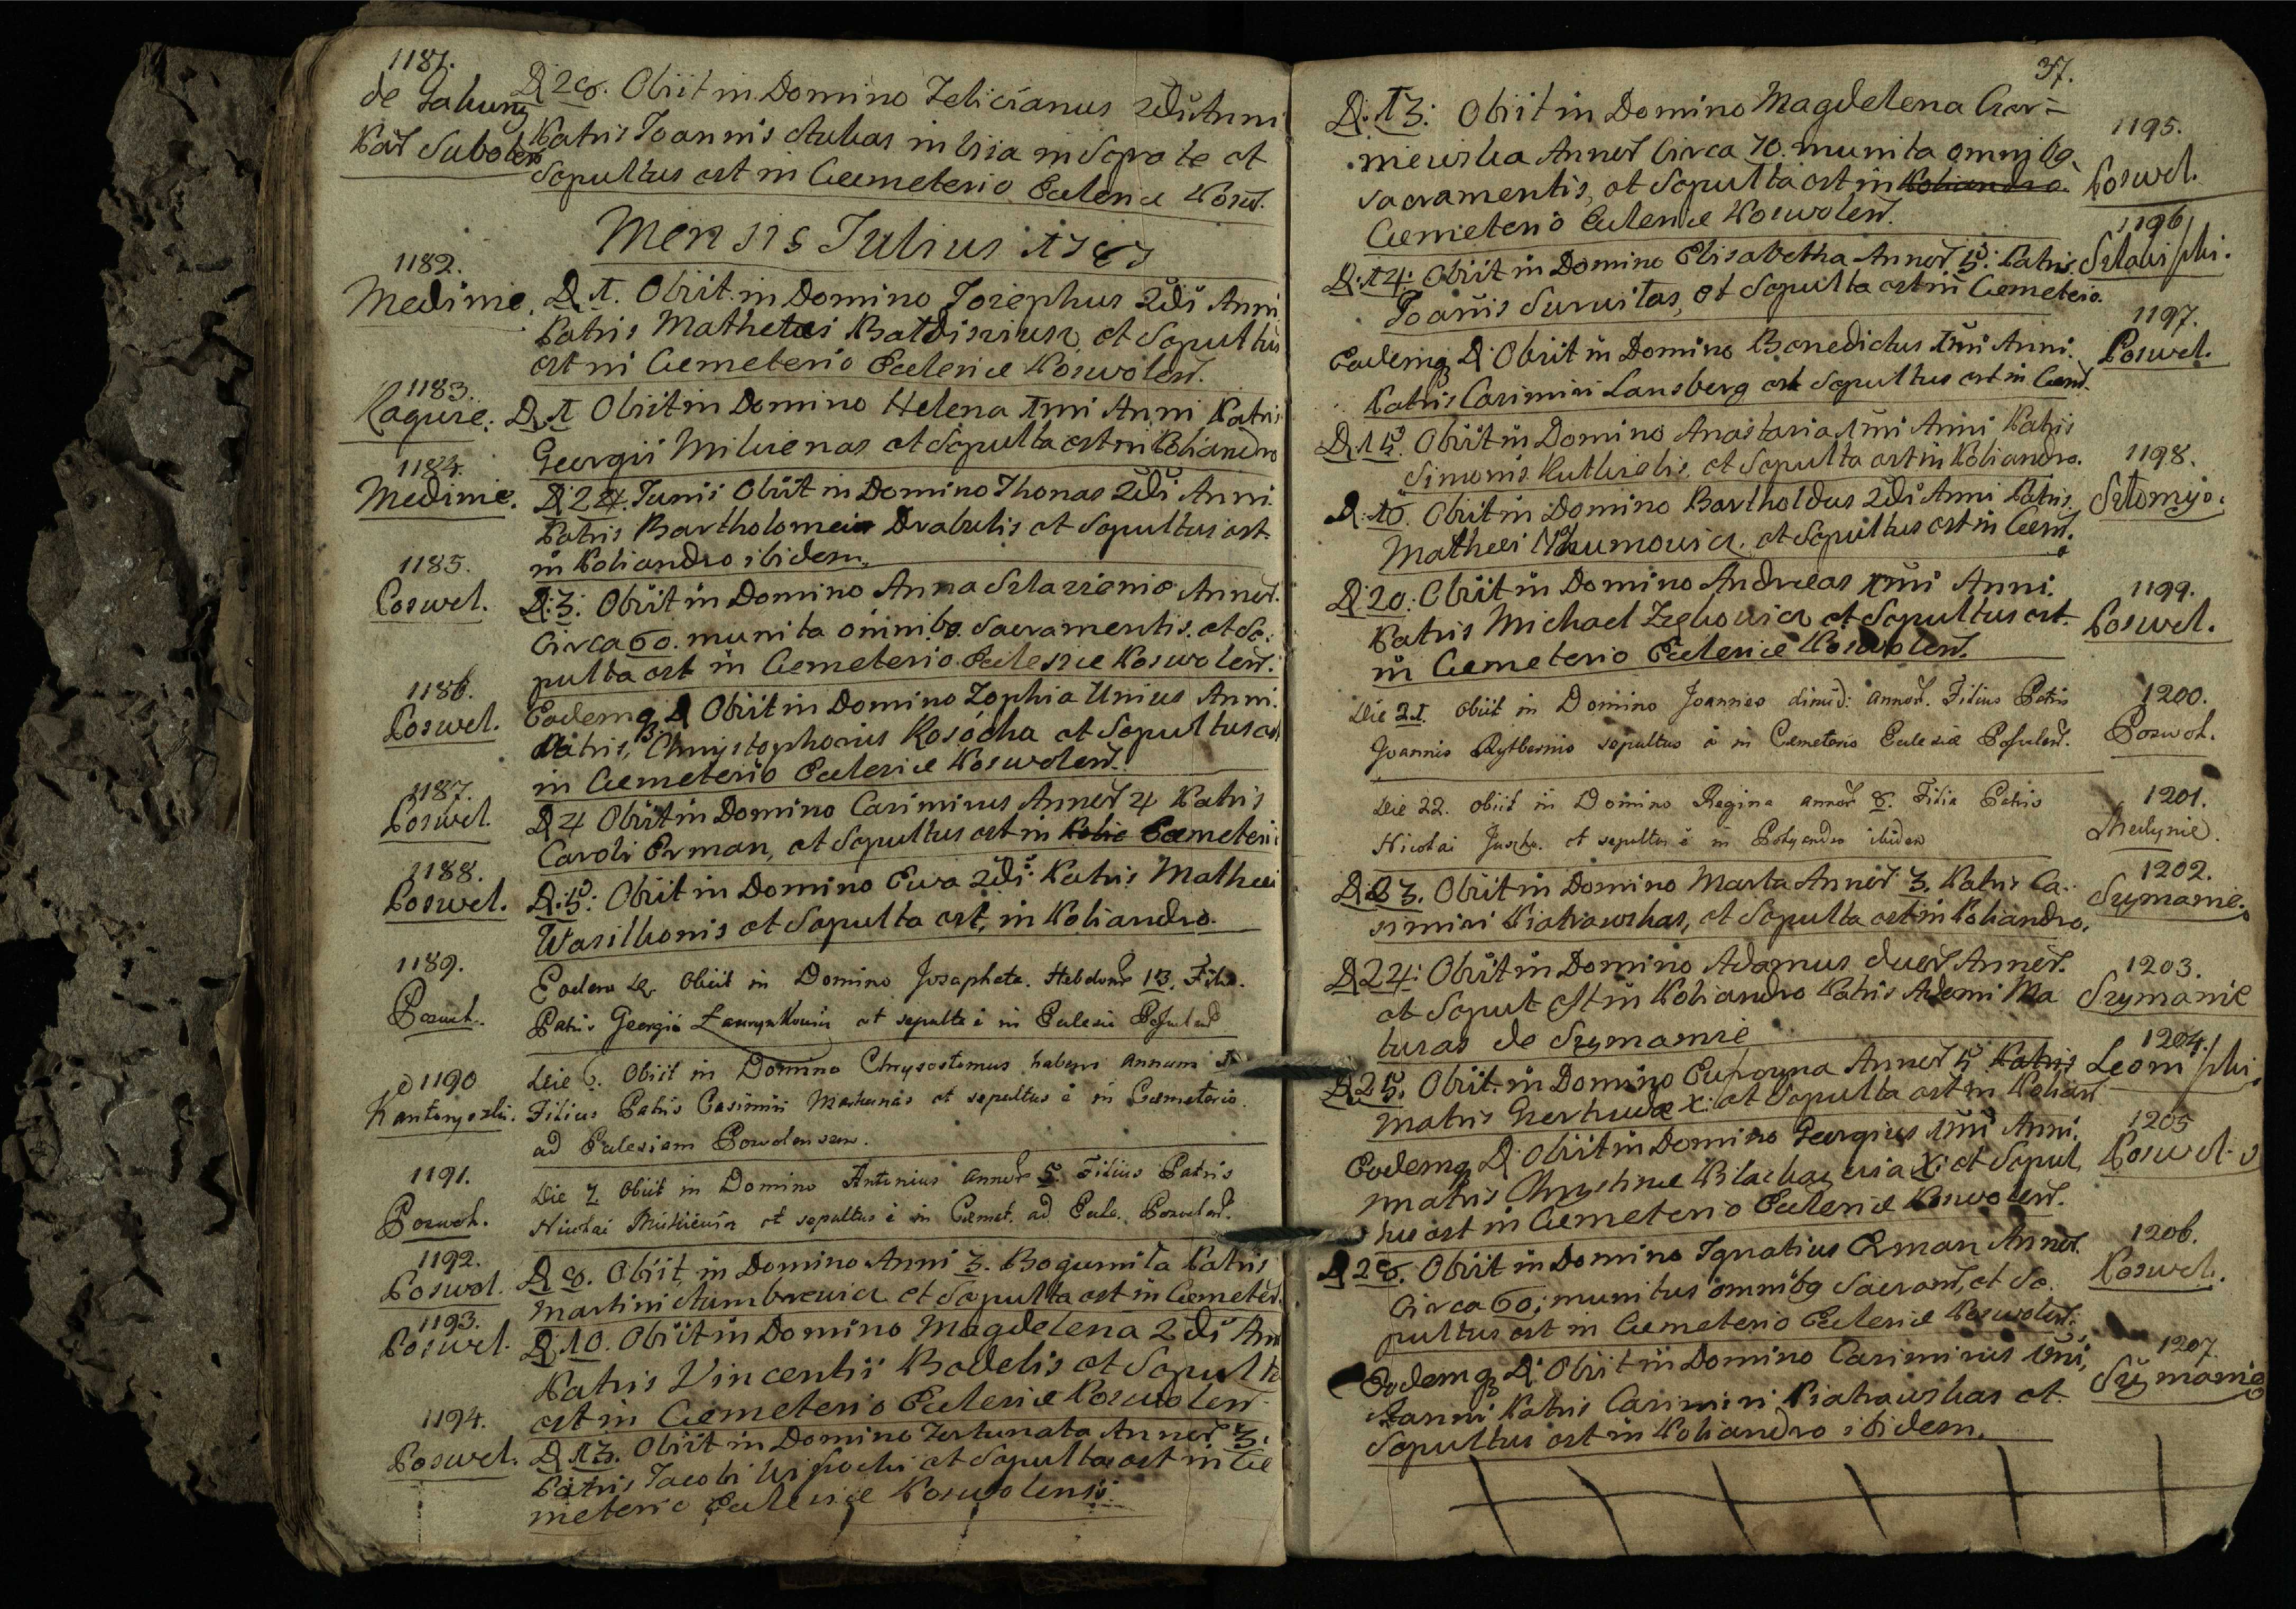 1181.
de Gakuny
Par Subot
D 28. Obiit in Domino Felicianus 2di Anni
Patris Joannis in via et
Sepultus est in Caemeterio Eclesiæ Posw.
Mensis Julius
1182.
Medinie.
D 1. Obiit in Domino Josephus 2di Anni
Patris Mathei et Sepultus
est in Cæmeterio Eclesiæ Poswolen.
1183.
D 1 Obiit in Domino Helena 1mi Anni Patris
Georgii Milwenas et Sepulta est in Poliandro
1184.
Medinie.
D 24. Junii Obiit in Domino Thonas 2di Anni.
Patris Bartholomei Drabulis et Sepultus est
in Poliandro ibidem.
1185.
Poswol.
D: 3: Obiit in Domino Anna Annor.
Circa 60. munita omnibq. Sacramentis. et Se:
pulta est in Cæmeterio Eclesiæ Poswolen.
1186.
Poswol.
Eademq D Obiit in Domino Zophia Unius Anni.
Patris Chrystophorius Rosocha et Sepultus est
in Cæmeterio Eclesiæ Poswolen.
1187.
Poswol.
D 4 Obiit in Domino Casimirus Annor 4 Patris
Caroli Erman, et Sepultus est in Cæmeteri
1188.
Poswol.
D: 5: Obiit in Domino Ewa 2di: Patris Mathei
Wasilkonis et Sepulta est, in Poliandro.
1189.
Poswol.
Eadem Obiit in Domino Josaphata. Hebdom 13. Filia.
Patris Georgii et sepulta ē in Eclesiæ
1190
Kantonyszki.
Die 6. Obiit in Domino Chrysostomus habens annum
Filius Patris Casimiri et sepultus ē in Cæmeterio.
ad Eclesiam Poswolensem.
1191.
Poswol.
Die 7 Obiit in Domino Antonius annor 5. Filius Patris
Nicolai et sepultus ē in Cæmet. ad Eccle. Poswolen.
1192.
Poswol.
D 8. Obiit in Domino Anni 3. Bogumila Patris
Martini et Sepulta est in Cæmeter.
1193.
Poswol.
D 10. Obiit in Domino Magdelena 2di An
Patris Vincentii Bodelis et Sepulta
est in Cæmeterio Eclesiæ Poswolen
1194.
Poswol.
D 13. Obiit in Domino Fortunata Annor 3.
Patris Jacobi et Sepulta est in Cæ
meterio Eclesiæ Poswolensis
37.
D: 13: Obiit in Domino Magdelena Czer=
niewska Annor Circa 70. munita omnibq.
Sacramentis, et Sepulta est in Poliandro
Cæmeterio Eclesiæ Poswolen.
1195.
Poswol.
D: 14: Obiit in Domino Elisabetha Annor. 5: Patris
Joanis et Sepulta est in Cæmeterio.
1196
Eademq D Obiit in Domino Benedictus 1mi Anni.
Patris Casimiri Lansberg et Sepultus est in Cæm.
1197.
Poswol.
D. 15. Obiit in Domino Anastasia 1mi Anni Patris
Simonis et Sepulta est in Poliandro.
1198.
D. 16. Obiit in Domino Bartholdus 2di Anni Patris.
Mathei et Sepultus est in Cæm.
D 20. Obiit in Domino Andreas 1mi Anni.
Patris Michael et Sepultus est.
in Cæmeterio Eclesiæ Poswolen.
1199.
Poswol.
Die 21. Obiit in Domino Joannes dimid: annor. Filius Patris
Joannis sepultus ē in Cæmeterio Eclesiæ
1200.
Poswol.
Die 22. obiit in Domino Regina annor 8. Filia Patris
Nicolai et sepulta ē in Polyandro ibidem
1201.
Medynie.
D: 23. Obiit in Domino Marta Annor 3. Patris Ca.
simiri Piatrawskas, et Sepulta est in Poliandro.
1202.
Szymanie.
D 24: Obiit in Domino Adamus duor Annor.
et Sepult est in Poliandro Patris Adami Ma
turas de Szymanie
1203.
Szymanie
D 25. Obiit in Domino Annor 5 Patris
Matris et Sepulta est in Polian
1204.
Eodemq D Obiit in Domino Georgius 1mi Anni.
matris Chrystinæ et Sepul
tus est in Cæmeterio Eclesiæ Poswolen.
1205
Poswol.
D 28. Obiit in Domino Ignatius Erman Annor.
Circa 60; munitus omnibq Sacram, et Se.
pultus est in Cæmeterio Eclesiæ Poswolen.
1206.
Poswol.
Eodemq D Obiit in Domino Casimirus 1mi,
anni Patris Casimiri Piatrawskas et.
Sepultus est in Poliandro ibidem.
1207
Szymanie